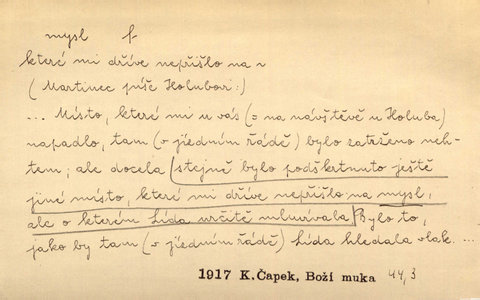 mysl f.
které mi dříve nepřišlo na ~
(Martinec píše Holubovi:)
... Místo, které mi u vás (= na návštěvě u Holuba)
napadlo, tam (v jízdním řádě) bylo zatrženo neh-
tem; ale docela stejně bylo podškrtnuto ještě
jiné místo, které mi dříve nepřišlo na mysl,
ale o kterém Lída určitě mluvívala Bylo to,
jako by tam (v jízdním řádě) Lída hledala vlak. ...
1917 K. Čapek, Boží muka 44,3